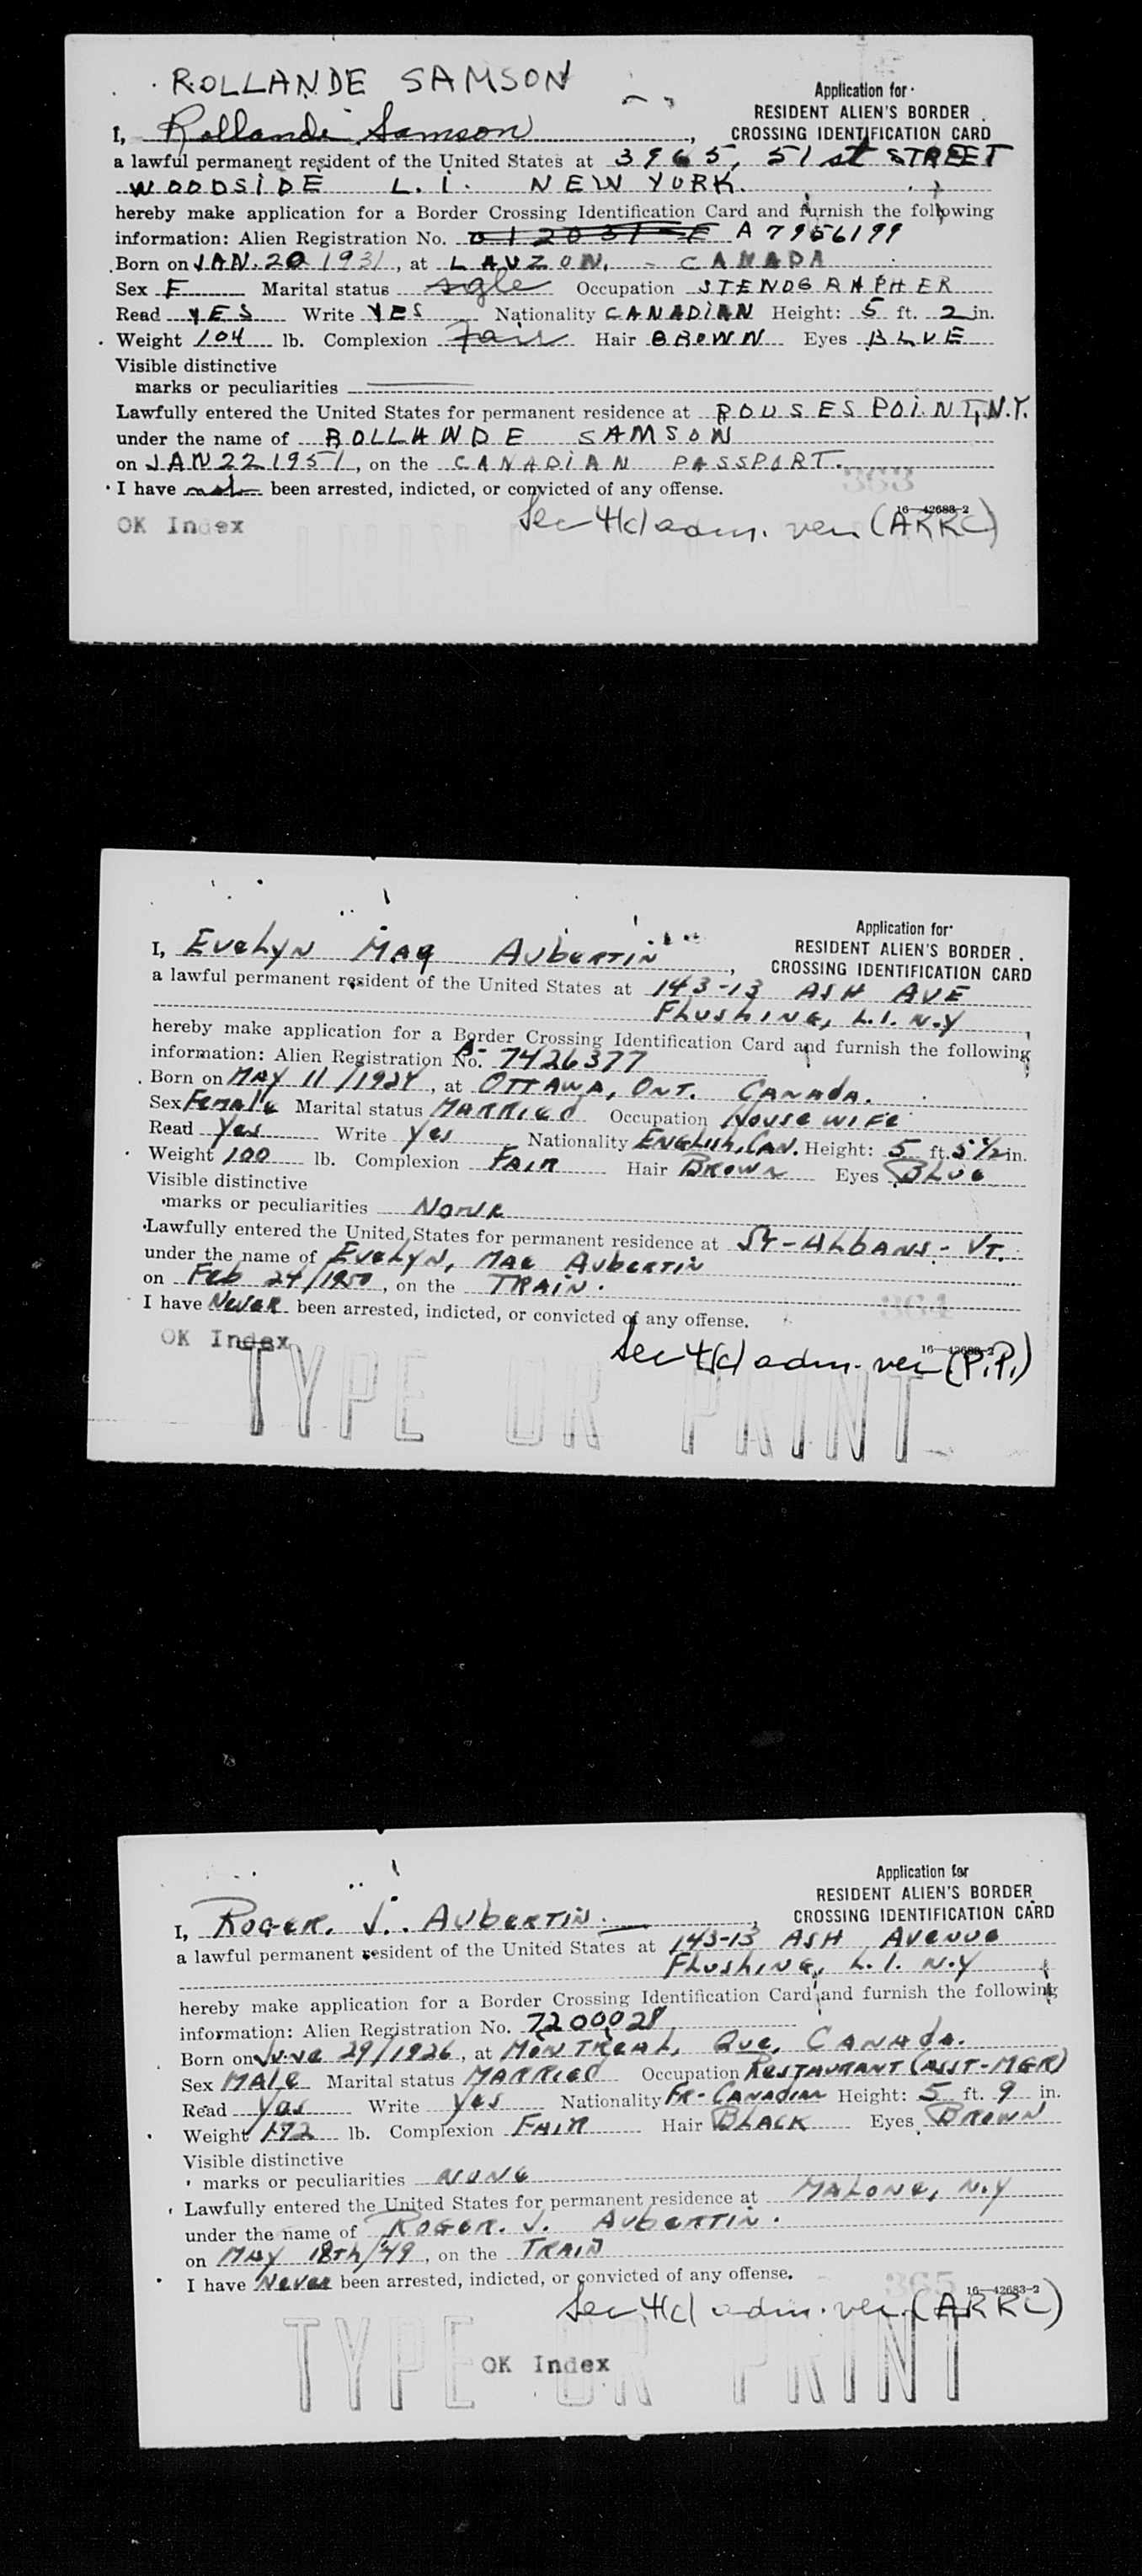 ROLLANDE SAMSON
Application for
RESIDENT ALIEN'S BORDER
I, Rollande Samson, CROSSING IDENTIFICATION CARD
a lawful permanent resident of the United States at 3965, 51st STREET
WOODSIDE L.I. NEW YORK.
hereby make application for a Border Crossing Identification Card and furnish the following
information: Alien Registration No. A 7956199
Born on JAN. 20 1931, at LAUZON, - CANADA
Sex F Marital status sgle Occupation STENOGRAHPHER
Read YES Write YES Nationality CANADIAN Height: 5 ft. 2 in.
Weight 104 lb. Complexion Fair Hair BROWN Eyes BLUE
Visible distinctive
marks or peculiarities
Lawfully entered the United States for permanent residence at ROUSES POINT, N.Y.
under the name of ROLLANDE SAMSON
on JAN 22 1951, on the CANADIAN PASSPORT.
I have not been arrested, indicted, or convicted of any offense.
363
16—42683-2
OK Index Sec 4(c) adm. ver (ARRC)
Application for
I, Evelyn Mae Aubertin, RESIDENT ALIEN'S BORDER
CROSSING IDENTIFICATION CARD
a lawful permanent resident of the United States at 143-13 ASH AVE
Flushing, L.I. N.Y
hereby make application for a Border Crossing Identification Card and furnish the following
information: Alien Registration No. A- 7426377
Born on MAY 11/1924, at OTTAWA, ONT. CANADA.
Sex Female Marital status MARRIED Occupation House wife
Read Yes Write Yes Nationality English, Can. Height: 5 ft. 5 1/2 in.
Weight 100 lb. Complexion FAIR Hair BROWN Eyes BLUE
Visible distinctive
marks or peculiarities None
Lawfully entered the United States for permanent residence at ST-ALBANS- VT.
under the name of Evelyn, Mae Aubertin
on Feb 24/1950, on the TRAIN.
I have Never been arrested, indicted, or convicted of any offense.
364
16—42683-2
OK Index Sec 4(c) adm. ver (P.P.)
TYPE OR PRINT
Application for
RESIDENT ALIEN'S BORDER
I, Roger. J. Aubertin. CROSSING IDENTIFICATION CARD
a lawful permanent resident of the United States at 143-13 ASH Avenue
Flushing, L.I. N.Y
hereby make application for a Border Crossing Identification Card and furnish the following
information: Alien Registration No. 7200028
Born on June 29/1926, at MONTREAL, Que, CANADA.
Sex MALE Marital status MARRIED Occupation RESTAURANT (ASST-MGR)
Read Yes Write Yes Nationality FR-CANADIAN Height: 5 ft. 9 in.
Weight 172 lb. Complexion FAIR Hair BLACK Eyes BROWN
Visible distinctive
marks or peculiarities NONE
Lawfully entered the United States for permanent residence at MALONE, N.Y
under the name of ROGER. J. AUBERTIN.
on MAY 18Th/49, on the TRAIN
I have Never been arrested, indicted, or convicted of any offense.
365
16—42683-2
Sec 4(c) adm. ver. (ARRC)
TYPE OR PRINT
OK Index